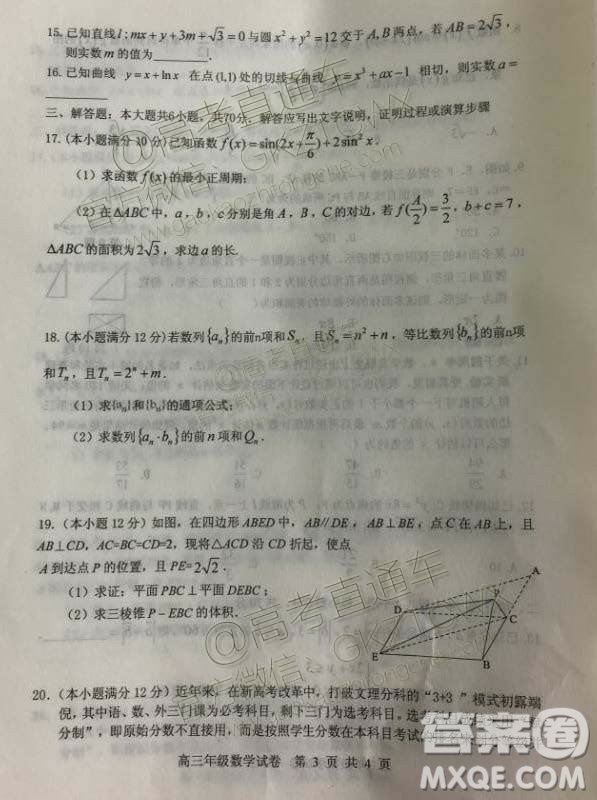 15. 已知直线 l:mx+y+3m+√3=0与圆 x²+y²=12交于 A,B两点，若 AB=2√3，
则实数 m 的值为________.
16. 已知曲线 y=x+lnx 在点(1,1)处的切线与曲线 y=x³+ax-1 相切，则实数 a=
________
三、解答题：本大题共6小题，共70分，解答应写出文字说明，证明过程或演算步骤
17. (本小题满分 10分)已知函数 f(x)=sin(2x+π/6)+2sin²x.
（1）求函数 f(x)的最小正周期；
（2）在△ABC中，a，b，c分别是角 A，B，C 的对边，若 f(A/2)=3/2，b+c=7，
△ABC的面积为2√3，求边a的长.
18. (本小题满分 12 分)若数列{aₙ}的前n项和Sₙ，且Sₙ=n²+n，等比数列{bₙ}的前n项
和Tₙ，且Tₙ=2ⁿ+m.
（1）求{aₙ}和{bₙ}的通项公式；
（2）求数列{aₙ·bₙ}的前n项和Qₙ.
19.（本小题 12 分）如图，在四边形 ABED 中，AB//DE，AB⊥BE，点 C 在 AB 上，且
AB⊥CD，AC=BC=CD=2，现将△ACD 沿 CD 折起，使点
A 到达点 P 的位置，且 PE=2√2.
（1）求证：平面 PBC⊥平面 DEBC；
（2）求三棱锥 P-EBC 的体积.
A
P
D
C
E
B
20.（本小题满分 12 分）近年来，在新高考改革中，打破文理分科的“3+3 ”模式初露端
倪，其中语、数、外三门课为必考科目，剩下三门为选考科目。选
分制”，即原始分数不直接用，而是按照学生分数在本科目考试
高三年级数学试卷 第 3 页 共 4 页
@高考直通车
官方微信：GKZTCWX
@高考直通车
官方微信：GKZTCWX
答案圈
MXQE.COM